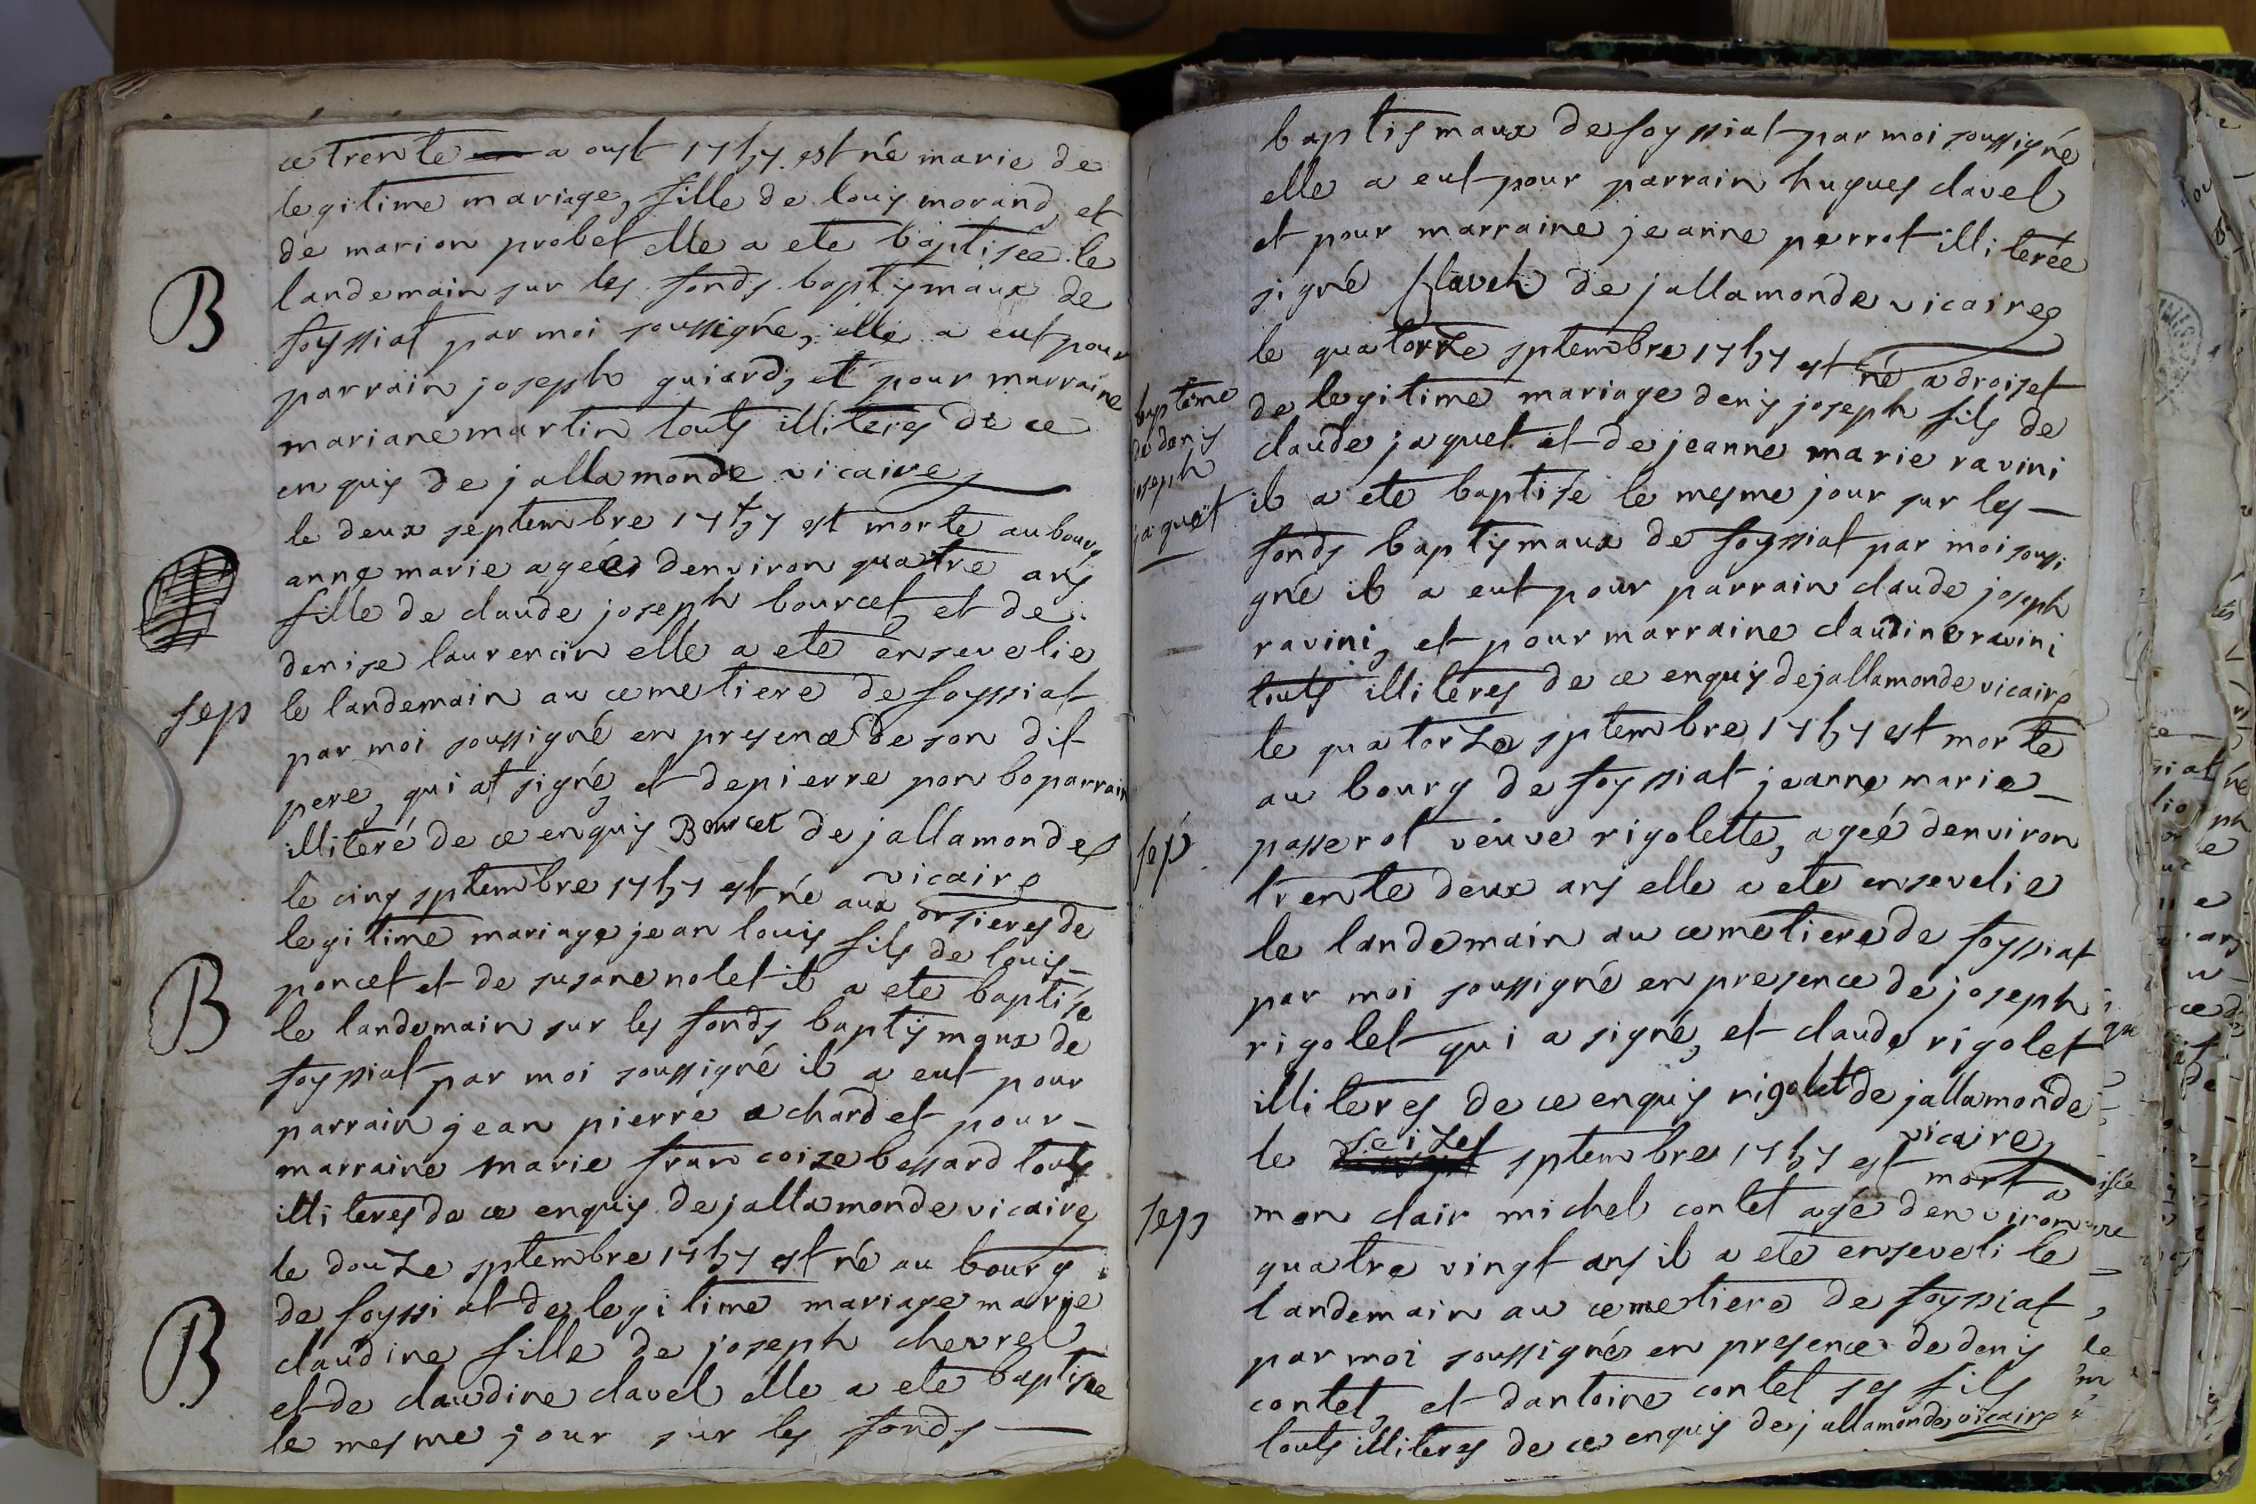 ce trente aoust 1757 est né marie de
legitime mariage, fille de louis morand, et
de marion probet elle a ete baptisée le
landemain sur les fonds baptismaux de
B
foyssiat par moi soussigné, elle a eut pour
parrain joseph guiard, et pour marraine
mariane martin touts illiteres de ce
enquis de jallamonde vicaire
le deux septembre 1757 est morte au bourg
anne marie agée denviron quatre ans
fille de claude joseph bourcet, et de
denise laurencin elle a ete ensevelie
sep
le landemain au cemetiere de foyssiat
par moi soussigné en presence de son dit
pere, qui at signé, et de pierre pon bo parrain
illiteré de ce enquis Bourcet de jallamonde
vicaire
le cinq septembre 1757 est né aux orsieres de
legitime mariage jean louis fils de louis
B
poncet et de susane nolet il a ete baptisé
le landemain sur les fonds baptismaux de
foyssiat par moi soussigné il a eut pour
parrain jean pierre achard et pour
marraine marie francoize bessard touts
illiteres de ce enquis de jallamonde vicaire
le douze septembre 1757 est né au bourg
de foyssiat de legitime mariage marie
B
claudine fille de joseph chevrel
et de claudine clavel elle a ete baptisee
le mesme jour sur les fonds
baptismaux de foyssiat par moi soussigné
elle a eut pour parrain hugues clavel
et pour marraine jeanne perrot illiterée
signé Clavel de jallamonde vicaire
le quatorze septembre 1757 est né a droiset
baptème
de denis
joseph
jaquet
de legitime mariage denis joseph fils de
claude jaquet et de jeanne marie ravini
il a ete baptise le mesme jour sur les
fonds baptismaux de foyssiat par moi soussi
gné il a eut pour parrain claude joseph
ravini, et pour marraine claudine ravini
touts illiteres de ce enquis de jallamonde vicaire
le quatorze septembre 1757 est morte
au bourg de foyssiat jeanne marie
sep
passerot veuve rigolette, ageé denviron
trente deux ans elle a ete ensevelie
le landemain au cemetiere de foyssiat
par moi soussigné en presence de joseph
rigolet qui a signé, et claude rigolet
illiteres de ce enquis rigolet de jallamonde
vicaire
le seize septembre 1757 est mort a
sep
mon clair michel contet agé denviron
quatre vingt ans il a eté enseveli le
landemain au cemetiere de foyssiat
par moi soussigné en presence de denis
contet, et dantoine contet ses fils
touts illiteres de ce enquis de jallamonde vicaire